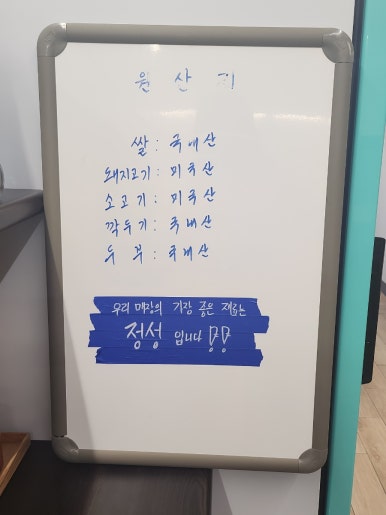 원산지
쌀 : 국내산
돼지고기 : 미국산
소고기 : 미국산
깍두기 : 국내산
두부 : 국내산
우리 매장의 가장 좋은 재료는
정성 입니다